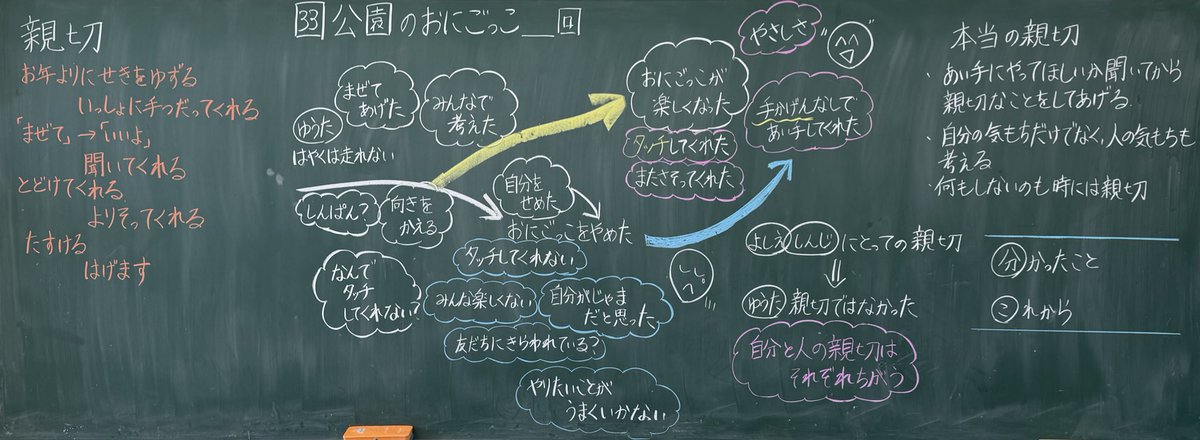 親切
お年よりにせきをゆずる
いっしょに手つだってくれる
「まぜて」→「いいよ」
聞いてくれる
とどけてくれる
よりそってくれる
たすける
はげます
33 公園のおにごっこ__回
ゆうた
はやくは走れない
まぜて
あげた
みんなで
考えた
しんぱん?
向きを
かえる
なんで
タッチ
してくれない
自分を
せめた
おにごっこをやめた
タッチしてくれない
みんな楽しくない
自分がじゃま
だと思った
友だちにきらわれている?
やりたいことが
うまくいかない
おにごっこが
楽しくなった
タッチしてくれた
またさそってくれた
やさしさ
手かげんなしで
あい手してくれた
よしえ しんじ にとっての親切
ゆうた 親切ではなかった
自分と人の親切は
それぞれちがう
本当の親切
・あい手にやってほしいか聞いてから
親切なことをしてあげる
・自分の気もちだけでなく、人の気もちも
考える
・何もしないのも時には親切
分かったこと
これから